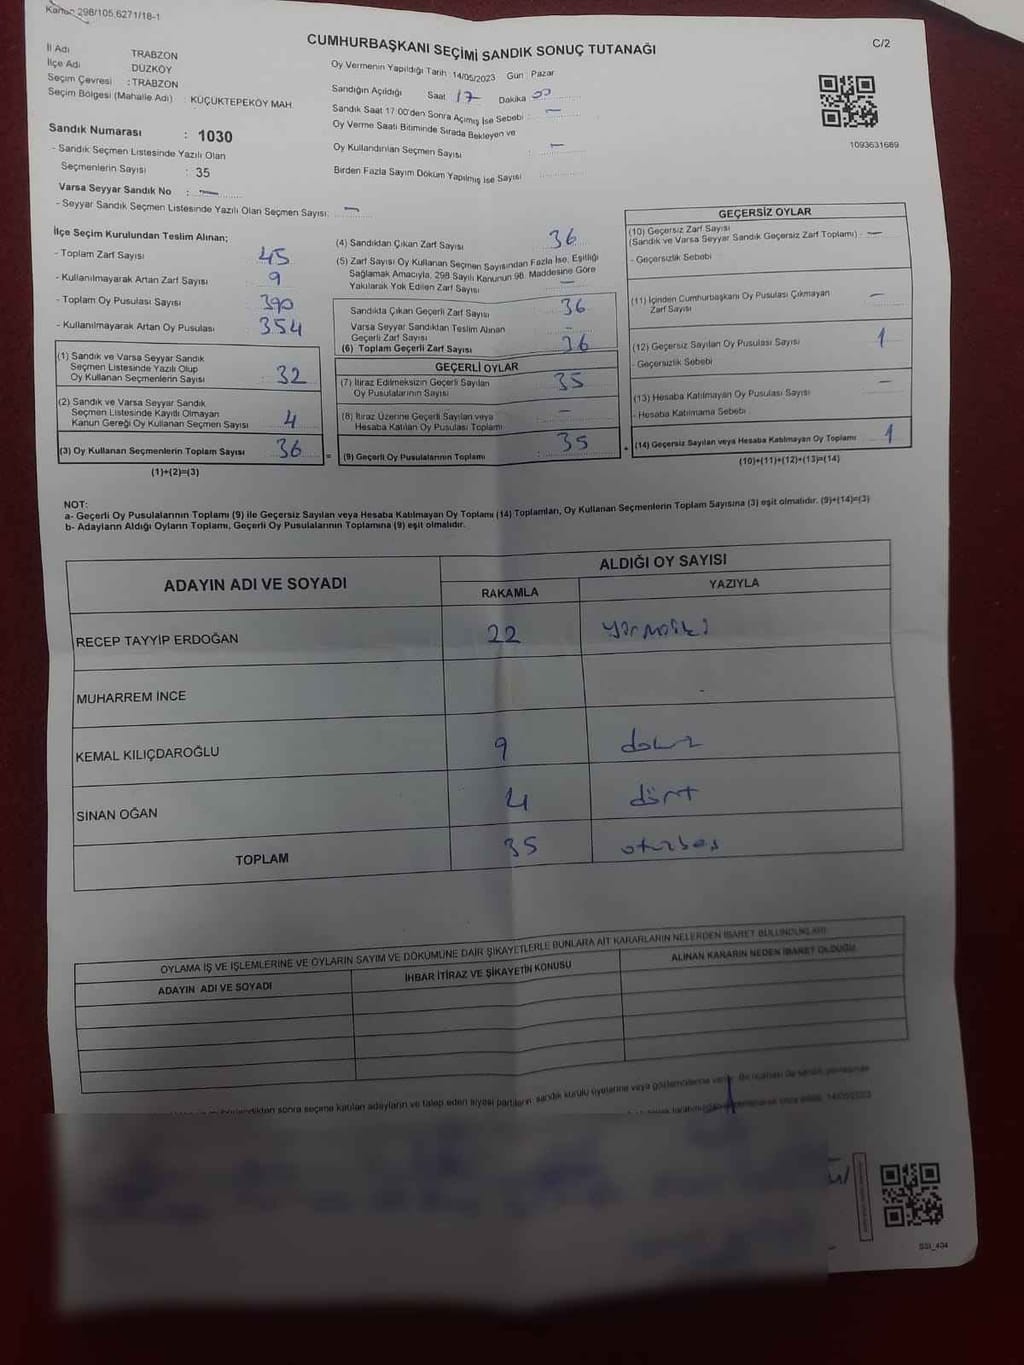 Kanun 298/105,6271/18-1
C/2
CUMHURBAŞKANI SEÇİMİ SANDIK SONUÇ TUTANAĞI
İl Adı TRABZON
İlçe Adı DÜZKÖY
Seçim Çevresi : TRABZON
Seçim Bölgesi (Mahalle Adı) : KÜÇÜKTEPEKÖY MAH.
Sandık Numarası : 1030
- Sandık Seçmen Listesinde Yazılı Olan
Seçmenlerin Sayısı : 35
Varsa Seyyar Sandık No : —
- Seyyar Sandık Seçmen Listesinde Yazılı Olan Seçmen Sayısı: —
Oy Vermenin Yapıldığı Tarih : 14/05/2023 Gün : Pazar
Sandığın Açıldığı Saat 17 Dakika 00
Sandık Saat 17:00'den Sonra Açımış İse Sebebi : —
Oy Verme Saati Bitiminde Sırada Bekleyen ve
Oy Kullandırılan Seçmen Sayısı : —
Birden Fazla Sayım Döküm Yapılmış İse Sayısı
1093631689
İlçe Seçim Kurulundan Teslim Alınan;
- Toplam Zarf Sayısı 45
- Kullanılmayarak Artan Zarf Sayısı 9
- Toplam Oy Pusulası Sayısı 390
- Kullanılmayarak Artan Oy Pusulası 354
(1) Sandık ve Varsa Seyyar Sandık
Seçmen Listesinde Yazılı Olup
Oy Kullanan Seçmenlerin Sayısı 32
(2) Sandık ve Varsa Seyyar Sandık
Seçmen Listesinde Kayıtlı Olmayan
Kanun Gereği Oy Kullanan Seçmen Sayısı 4
(3) Oy Kullanan Seçmenlerin Toplam Sayısı 36
(1)+(2)=(3)
(4) Sandıktan Çıkan Zarf Sayısı 36
(5) Zarf Sayısı Oy Kullanan Seçmen Sayısından Fazla İse, Eşitliği
Sağlamak Amacıyla, 298 Sayılı Kanunun 98. Maddesine Göre
Yakılarak Yok Edilen Zarf Sayısı —
Sandıkta Çıkan Geçerli Zarf Sayısı 36
Varsa Seyyar Sandıktan Teslim Alınan
Geçerli Zarf Sayısı —
(6) Toplam Geçerli Zarf Sayısı 36
GEÇERLİ OYLAR
(7) İtiraz Edilmeksizin Geçerli Sayılan
Oy Pusulalarının Sayısı 35
(8) İtiraz Üzerine Geçerli Sayılan veya
Hesaba Katılan Oy Pusulası Toplamı —
= (9) Geçerli Oy Pusulalarının Toplamı 35
GEÇERSİZ OYLAR
(10) Geçersiz Zarf Sayısı
(Sandık ve Varsa Seyyar Sandık Geçersiz Zarf Toplamı) - —
- Geçersizlik Sebebi
(11) İçinden Cumhurbaşkanı Oy Pusulası Çıkmayan
Zarf Sayısı —
(12) Geçersiz Sayılan Oy Pusulası Sayısı 1
- Geçersizlik Sebebi
(13) Hesaba Katılmayan Oy Pusulası Sayısı —
- Hesaba Katılmama Sebebi
+ (14) Geçersiz Sayılan veya Hesaba Katılmayan Oy Toplamı 1
(10)+(11)+(12)+(13)=(14)
NOT:
a- Geçerli Oy Pusulalarının Toplamı (9) ile Geçersiz Sayılan veya Hesaba Katılmayan Oy Toplamı (14) Toplamları, Oy Kullanan Seçmenlerin Toplam Sayısına (3) eşit olmalıdır. (9)+(14)=(3)
b- Adayların Aldığı Oyların Toplamı, Geçerli Oy Pusulalarının Toplamına (9) eşit olmalıdır.
ADAYIN ADI VE SOYADI ALDIĞI OY SAYISI
RAKAMLA YAZIYLA
RECEP TAYYİP ERDOĞAN 22 yirmiiki
MUHARREM İNCE
KEMAL KILIÇDAROĞLU 9 dokuz
SİNAN OĞAN 4 dört
TOPLAM 35 otuzbeş
OYLAMA İŞ VE İŞLEMLERİNE VE OYLARIN SAYIM VE DÖKÜMÜNE DAİR ŞİKAYETLERLE BUNLARA AİT KARARLARIN NELERDEN İBARET BULUNDUKLARI
ADAYIN ADI VE SOYADI İHBAR İTİRAZ VE ŞİKAYETİN KONUSU ALINAN KARARIN NEDEN İBARET OLDUĞU
sonra seçime katılan adayların ve talep eden siyasi partilerin sandık kurulu üyelerine veya gözlemcilerine
14/05/2023
SSI_404